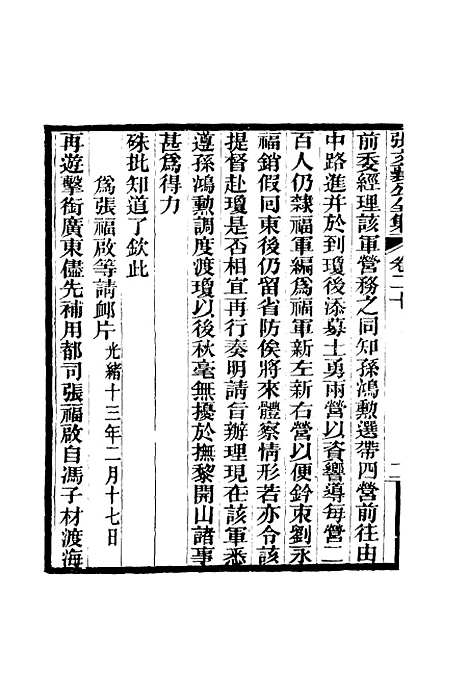 張文襄公全集 卷二十 二
前委經理該軍營務之同知孫鴻勲選帶四營前往由
中路進并於到瓊後添募土勇兩營以資響導每營二
百人仍隸福軍編爲福軍新左新右營以便鈐束劉永
福銷假回東後仍留省防俟將來體察情形若亦令該
提督赴瓊是否相宜再行奏明請旨辦理現在該軍悉
遵孫鴻勲調度渡瓊以後秋毫無擾於撫黎開山諸事
甚爲得力
硃批知道了欽此
爲張福啟等請䘏片光緒十三年二月十七日
再遊擊銜廣東儘先補用都司張福啟自馮子材渡海